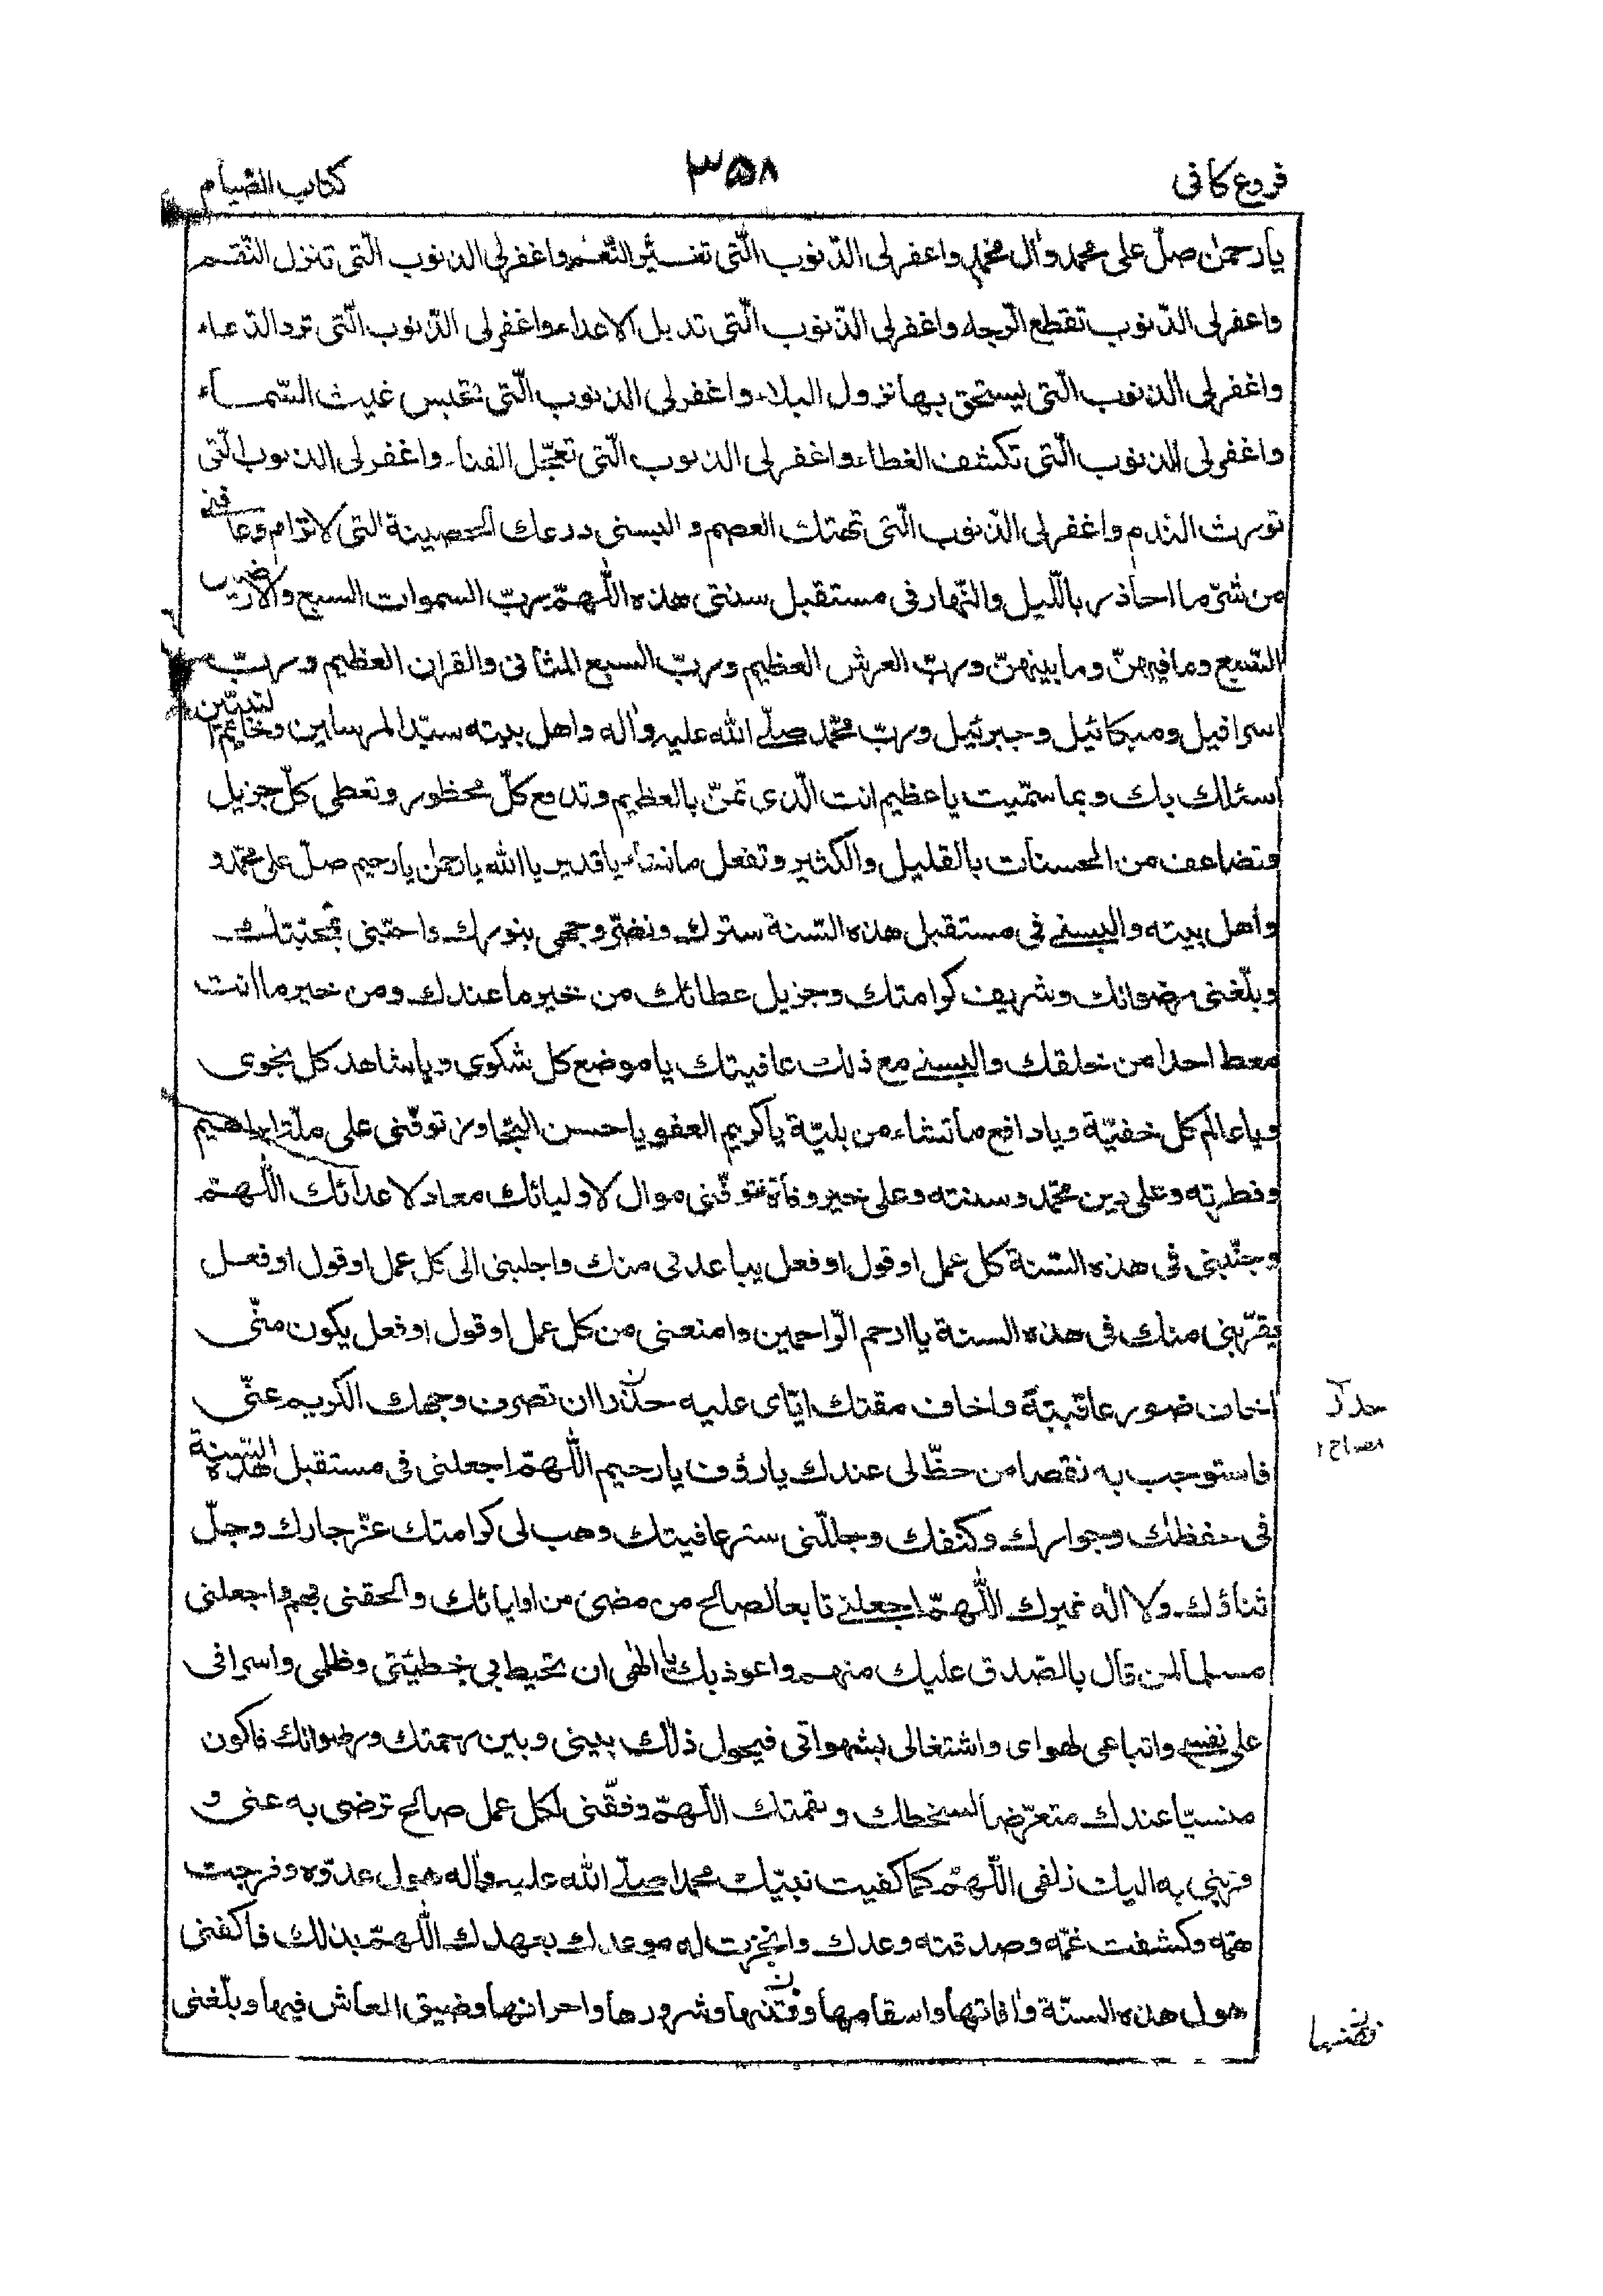 فروع كافى ۳۵۸ كتاب الصّيام
يا رحمن صلّ على محمد وآل محمّد واغفر لى الذّنوب الّتى تغيّر النّعم واغفر لى الذنوب الّتى تنزل النّقم
واغفر لى الذّنوب تقطع الرّجاء واغفر لى الذّنوب الّتى تديل الاعداء واغفر لى الذّنوب الّتى ترد الدّعاء
واغفر لى الذنوب الّتى يستحق بها نزول البلاء واغفر لى الذنوب الّتى تحبس غيث السّمآء
واغفر لى الذنوب الّتى تكشف الغطاء واغفر لى الذنوب الّتى تعجّل الفناء واغفر لى الذنوب الّتى
تورث الندم واغفر لى الذّنوب الّتى تهتك العصم والبسنى درعك الحصينة التى لا ترام وعافنى
من شرّ ما احاذر باللّيل والنّهار فى مستقبل سنتى هذه اللّهمّ ربّ السموات السبع والارضين
السّبع وما فيهنّ وما بينهنّ وربّ العرش العظيم وربّ السبع المثانى والقران العظيم وربّ
اسرافيل وميكائيل وجبرئيل وربّ محمّد صلّى الله عليه وآله واهل بيته سيّد المرسلين وخاتم النبيّين
اسئلك بك وبما سمّيت يا عظيم انت الّذى تمنّ بالعظيم وتدفع كلّ محظور وتعطى كلّ جزيل
وتضاعف من الحسنات بالقليل والكثير وتفعل ما تشاء يا قدير يا الله يا رحمن يا رحيم صلّ على محمّد و
واهل بيته والبسنى فى مستقبل هذه السّنة سترك ونضّر وجهى بنورك واحبّنى بمحبّتك
وبلّغنى رضوانك وشريف كرامتك وجزيل عطائك من خير ما عندك ومن خير ما انت
معط احدا من خلقك والبسنى مع ذلك عافيتك يا موضع كل شكوى ويا شاهد كل نجوى
ويا عالم كل خفيّة ويا دافع ما تشاء من بليّة يا كريم العفو يا حسن التجاوز توفّنى على ملّة ابراهيم
وفطرته وعلى دين محمّد وسنته وعلى خير وفاة فتوفّنى موال لاوليائك معاد لاعدائك اللّهمّ
وجنّبنى فى هذه السّنة كل عمل او قول او فعل يباعدنى منك واجلبنى الى كل عمل او قول او فعل
يقرّبنى منك فى هذه السنة يا ارحم الرّاحمين وامنعنى من كل عمل او قول او فعل يكون منّى
اخاف ضرر عاقبته واخاف مقتك ايّاى عليه حذرا ان تصرف وجهك الكريم عنّى
حذار
مصباح
فاستوجب به نقصا من حظّ لى عندك يا رؤف يا رحيم اللّهمّ اجعلنى فى مستقبل هذه السّنة
فى حفظك وجوارك وكنفك وجللّنى ستر عافيتك وهب لى كرامتك عزّ جارك وجلّ
ثناؤك ولا اله غيرك اللّهمّ اجعلنى تابعا لصالح من مضى من اوليائك والحقنى بهم واجعلنى
مسلما لمن قال بالصّدق عليك منهم واعوذ بك يا الهى ان تحيط بى خطيئتى وظلمى واسرافى
على نفسى واتباعى لهواى واشتغالى بشهواتى فيحول ذلك بينى وبين رحمتك ورضوانك فاكون
منسيّا عندك متعرّضا لسخطك ونقمتك اللّهمّ وفقّنى لكل عمل صالح ترضى به عنى و
قرّبنى به اليك زلفى اللّهمّ كما كفيت نبيّك محمدا صلّى الله عليه وآله هول عدوّه وفرجت
همّه وكشفت غمّه وصدقته وعدك وانجزت له موعدك بعهدك اللّهمّ بذلك فاكفنى
هول هذه السنّة وآفاتها واسقامها وفتنها وشرورها واحزانها وضيق المعاش فيها وبلّغنى